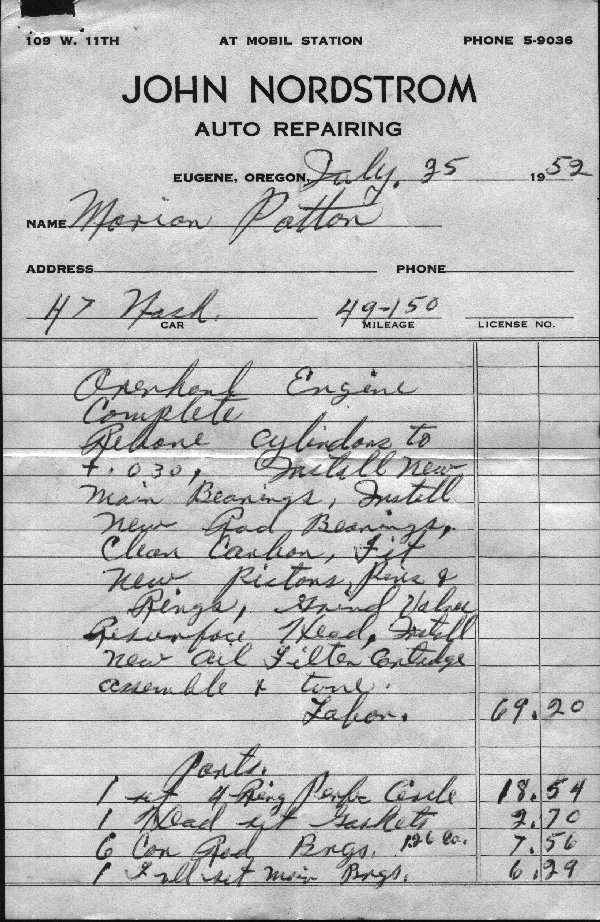 109 W. 11TH AT MOBIL STATION PHONE 5-9036
JOHN NORDSTROM
AUTO REPAIRING
EUGENE, OREGON, July. 25 1952
NAME Marion Patton
ADDRESS PHONE
47 Nash. 49-150
CAR MILEAGE LICENSE NO.
Overhaul Engine
Complete
Rebore cylinders to
+.030, Install New
Main Bearings, Install
New Rod Bearings,
Clean Carbon, Fit
New Pistons, Pins &
Rings, Grind Valves
Resurface Head, Install
New Oil Filter Cartridge
assemble & tune.
Labor. 69.20
Parts.
1 set 4-Ring Perfec Circle 18.54
1 Head set Gaskets 2.70
6 Con Rod Brgs. 126 Ea. 7.56
1 Full set Main Brgs. 6.29